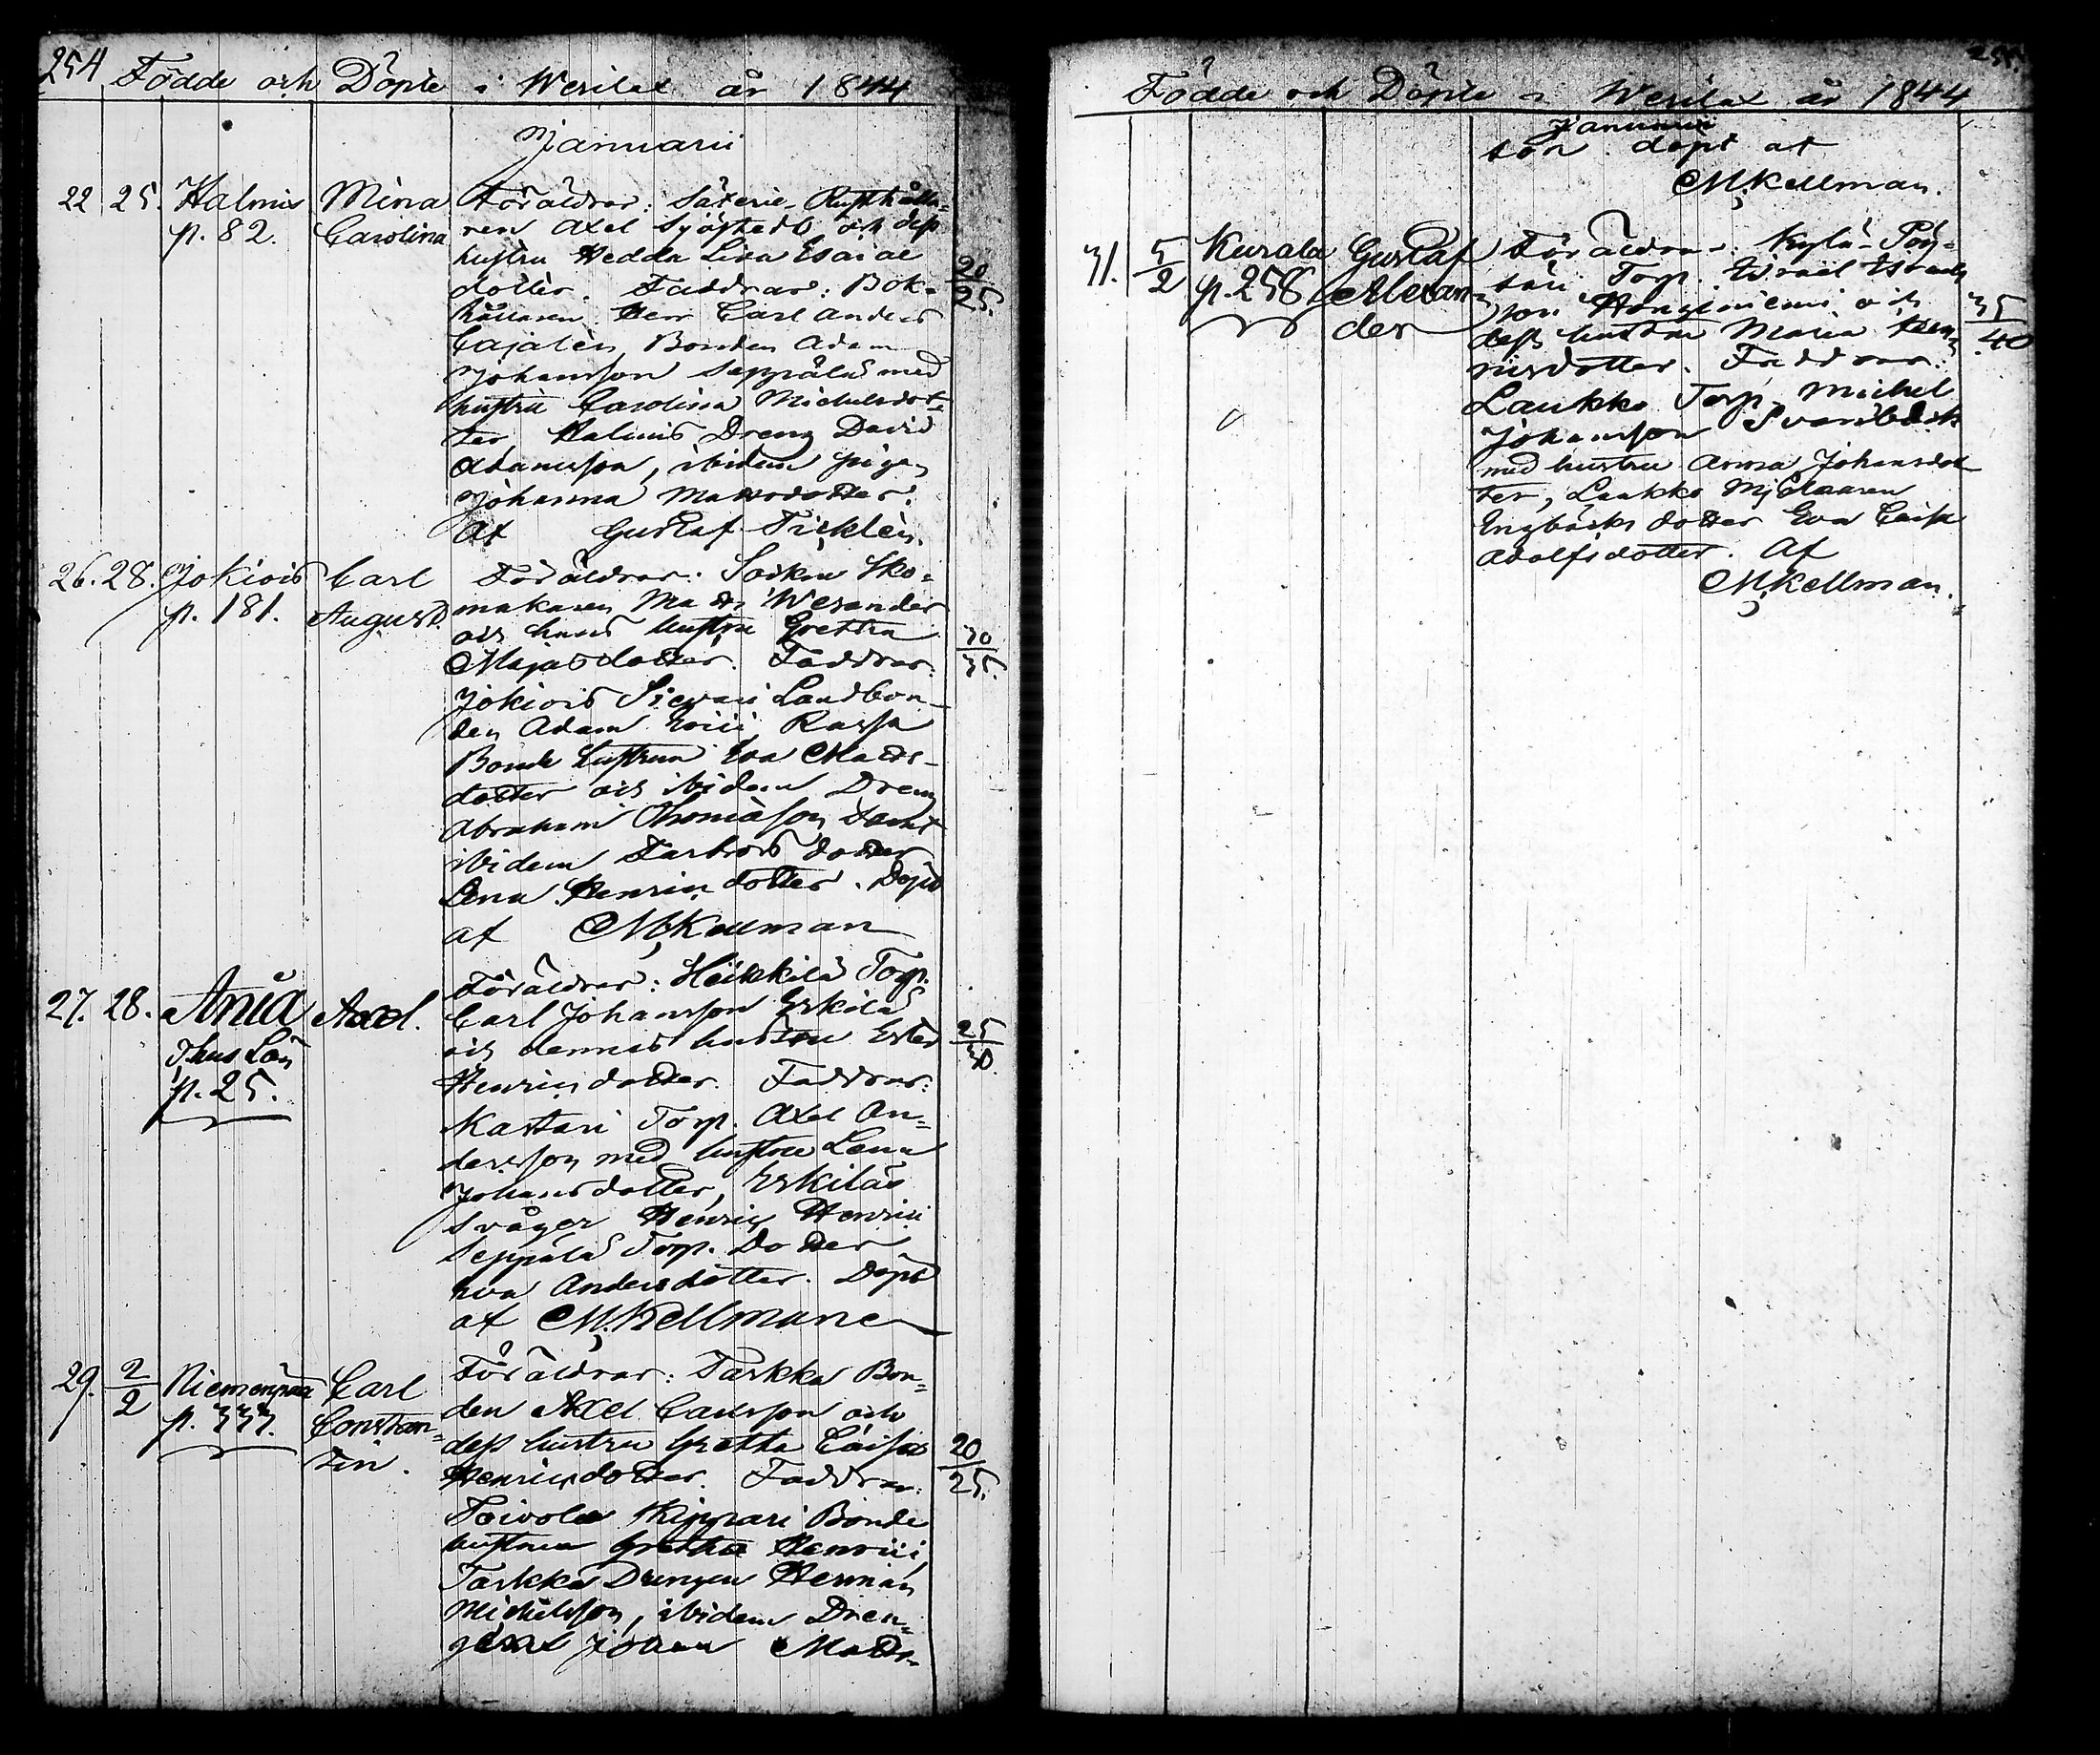 254 Födde och Döpte i Wesilax år 1844
Januarii
22 25. Halmis Mina Föräldrar: Säterie-Rusthålla-
p. 82. Carolina ren Axel Sjöstedt och dess
hustru Hedda Lisa Esaiae
dotter. Faddrar: Bok- 20/25.
hållaren Herr Carl Anders
Cajalén, Bonden Adam
Johansson Seppälä med
hustru Carolina Michelsdot-
ter Halmis Dreng David
Adamsson, ibidem pigan
Johanna Matsdotter.
Af Gustaf Ticklén.
26. 28. Jokiois Carl Föräldrar: Socken Sko-
p. 181. August. makaren Matts Wesander
och hans hustru Gretha 30/35.
Majasdotter. Faddrar:
Jokiois Siewari Landbon-
den Adam Erici, Rassa
Bonde hustrun Eva Matts-
dotter och ibidem Dreng
Abraham Thomasson samt
ibidem Farbrors dotter
Lena Henricsdotter. Döpt
af M. Kellman
27. 28. Ania Axel. Föräldrar: Heikkilä Torp.
Carl Johansson Eskilä
och dennes hustru Ester 25/30.
p. 25. Henricsdotter. Faddrar:
Kastari Torp. Axel An-
dersson med hustru Lena
Johansdotter, Eskiläs
svåger Henric Henrici
Seppälä Torp. Dotter
Eva Andersdotter. Döpt
af M. Kellman
29. 2/2 Niemenpää Carl Föräldrar: Tarkka Bon-
p. 333. Constan- den Axel Carlsson och
tin. dess hustru Gretha Caisa 20/25.
Henricsdotter. Faddrar:
Toivola Kippari Bonde
hustrun Gretha Henrici,
Tarkka Drengen Herman
Michelsson, ibidem Dren-
gen Johan Matts-
255.
Födde och Döpte i Wesilax år 1844
Januarii
son. döpt af
M. Kellman.
31. 5/2 Kurala Gustaf Föräldrar: Kylä-Pöy-
p. 258 Alexan- säri Torp. Israel Israels
der son Hongoniemi och 35/40
dess hustru Maria Hen-
ricsdotter. Faddrar:
Laukko Torp. Michel
Johansson Svartbäck
med hustru Anna Johansdot-
ter, Laukko Mjölnaren
Engbäcks dotter Eva Caisa
Adolfsdotter. Af
M. Kellman.